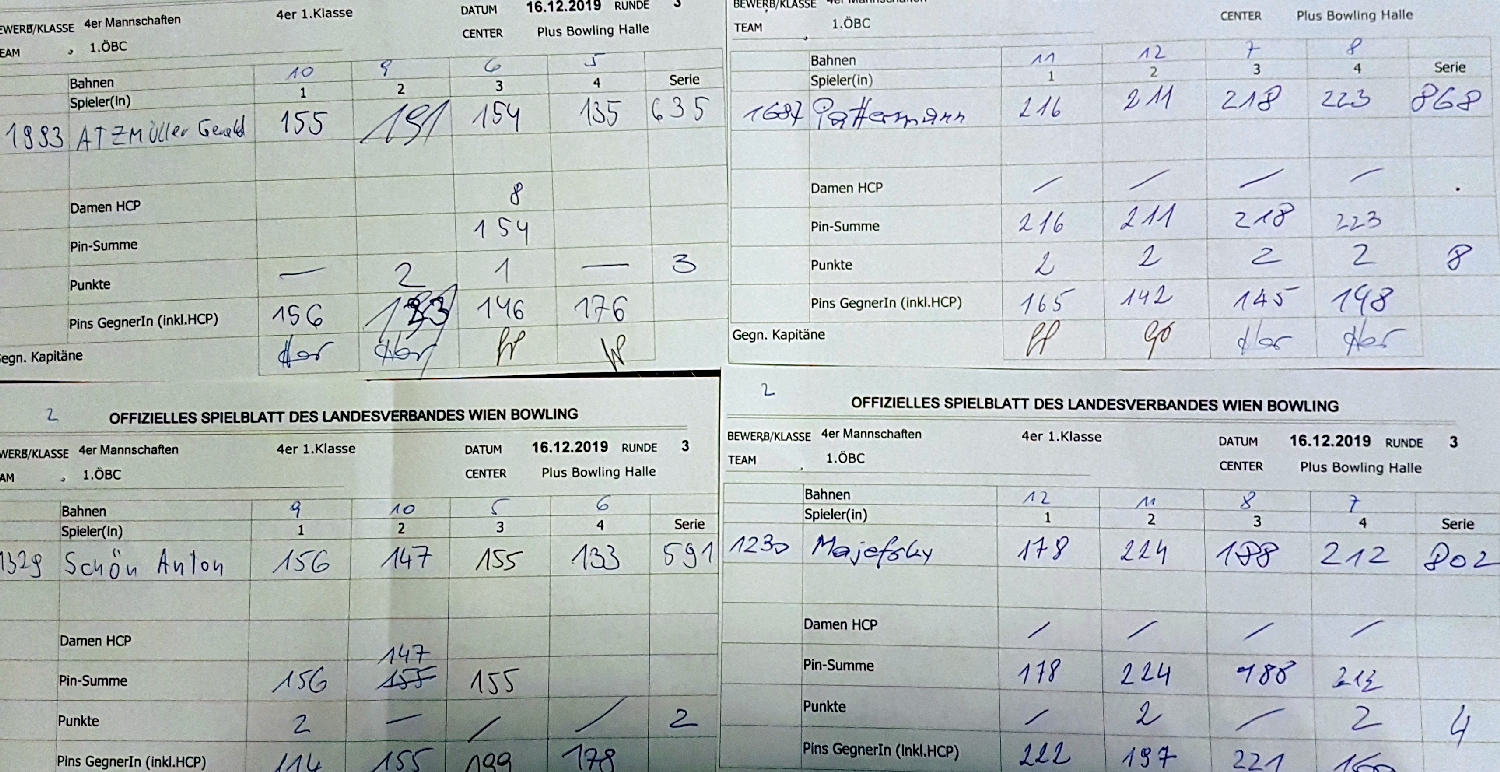 BEWERB/KLASSE 4er Mannschaften 4er 1.Klasse DATUM 16.12.2019 RUNDE 3
TEAM 1.ÖBC CENTER Plus Bowling Halle
Bahnen 10 9 6 5
Spieler(in) 1 2 3 4 Serie
1993 ATZMÜller Gerald 155 191 154 135 635
Damen HCP 8
Pin-Summe 154
Punkte — 2 1 — 3
Pins GegnerIn (inkl.HCP) 156 146 176
Gegn. Kapitäne
BEWERB/KLASSE 4er Mannschaften
TEAM 1.ÖBC CENTER Plus Bowling Halle
Bahnen 11 12 7 8
Spieler(in) 1 2 3 4 Serie
1687 Pattermann 216 211 218 223 868
Damen HCP / / / /
Pin-Summe 216 211 218 223
Punkte 2 2 2 2 8
Pins GegnerIn (inkl.HCP) 165 142 145 198
Gegn. Kapitäne
2
OFFIZIELLES SPIELBLATT DES LANDESVERBANDES WIEN BOWLING
WERB/KLASSE 4er Mannschaften 4er 1.Klasse DATUM 16.12.2019 RUNDE 3
AM 1.ÖBC CENTER Plus Bowling Halle
Bahnen 9 10 5 6
Spieler(in) 1 2 3 4 Serie
1329 Schön Anton 156 147 155 133 591
Damen HCP
147
Pin-Summe 156 155 155
Punkte 2 — / / 2
Pins GegnerIn (inkl.HCP) 114 155 199 178
2
OFFIZIELLES SPIELBLATT DES LANDESVERBANDES WIEN BOWLING
BEWERB/KLASSE 4er Mannschaften 4er 1.Klasse DATUM 16.12.2019 RUNDE 3
TEAM 1.ÖBC CENTER Plus Bowling Halle
Bahnen 12 11 8 7
Spieler(in) 1 2 3 4 Serie
1230 Majefsky 178 224 188 212 802
Damen HCP / / / /
Pin-Summe 178 224 188 212
Punkte / 2 / 2 4
Pins GegnerIn (inkl.HCP) 222 197 221